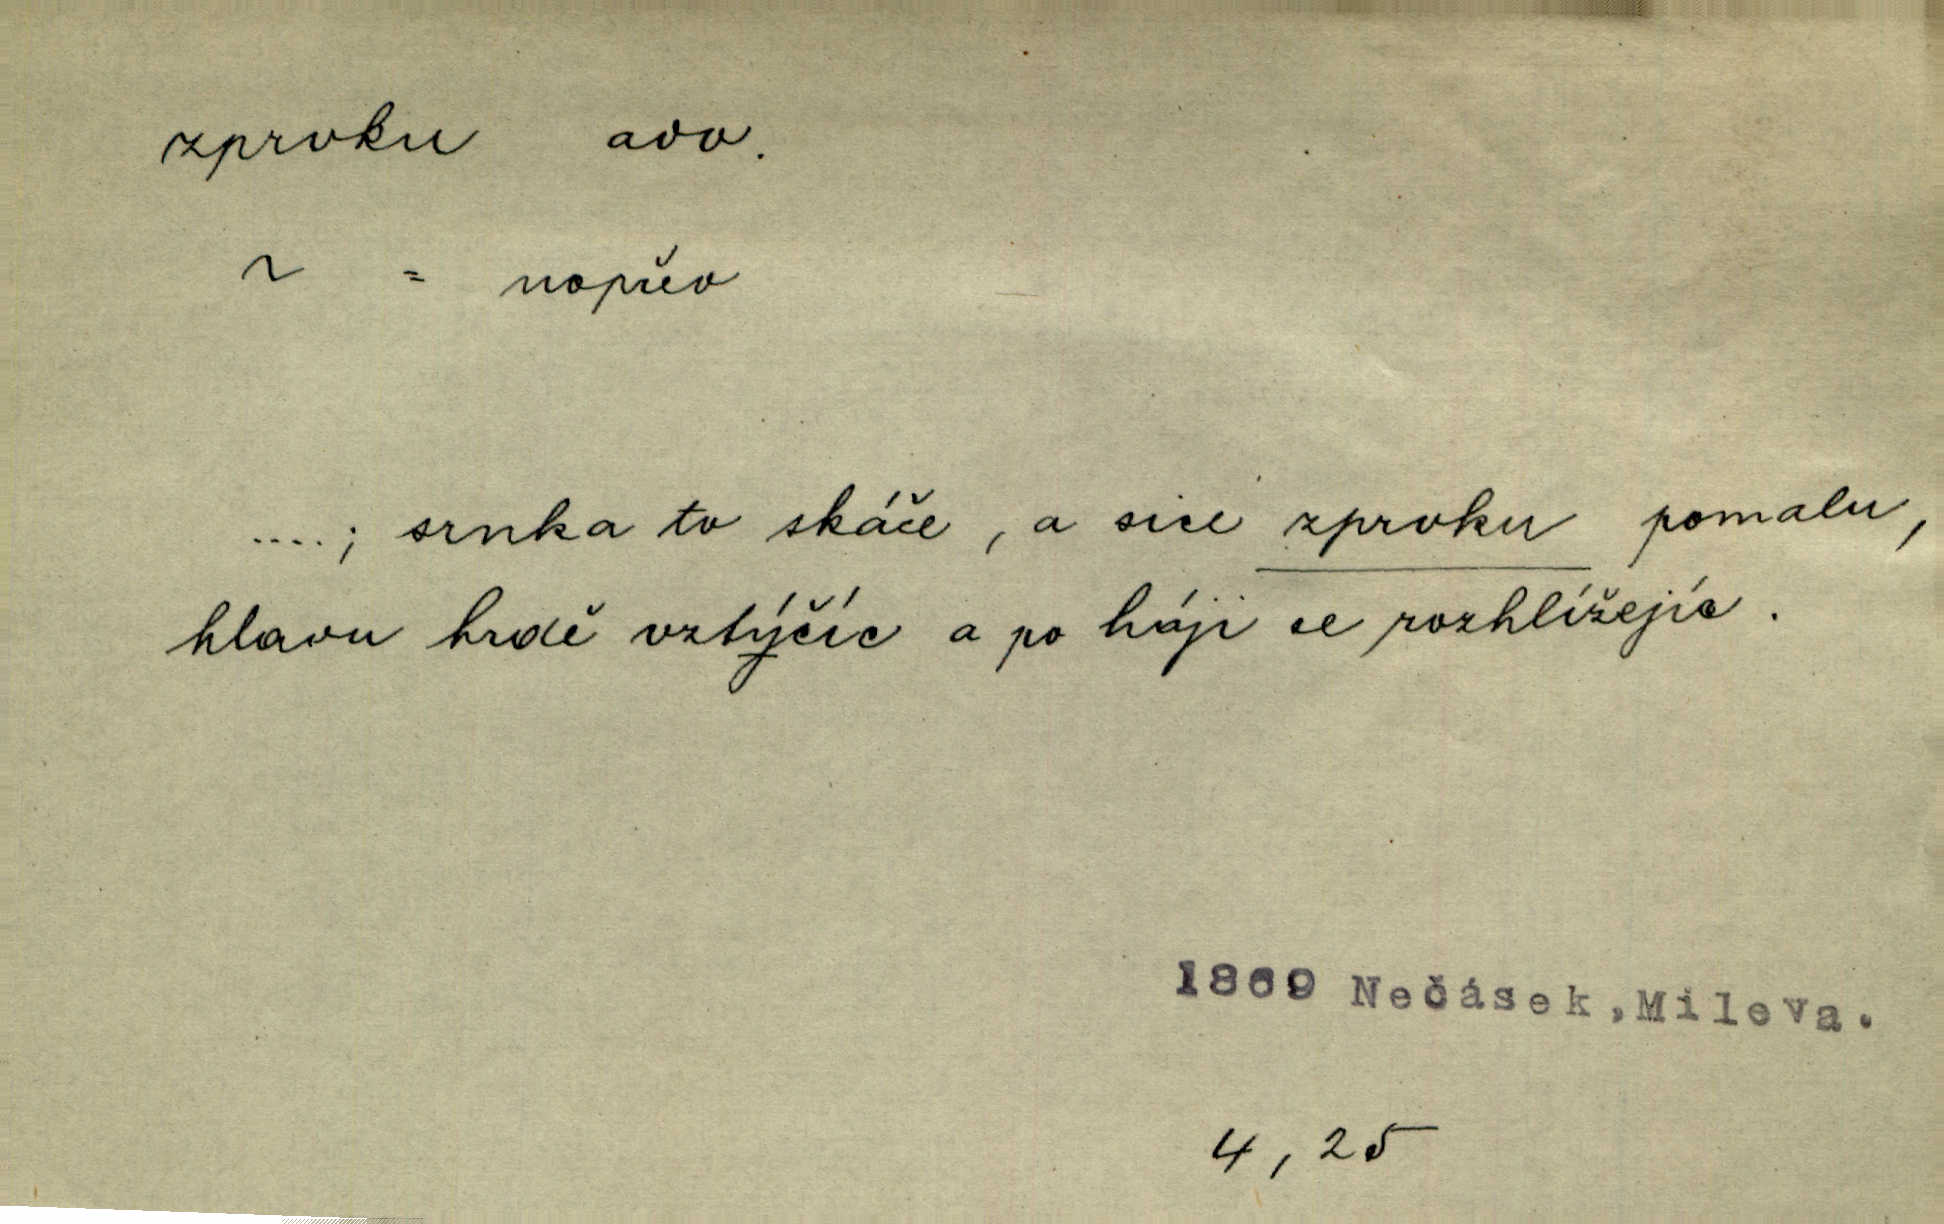 zprvku adv.
~ = napřed
....; srnka to skáče, a sice zprvku pomalu,
hlavu hrdě vztýčíc a po háji se rozhlížejíc.
1869 Nečásek,Mileva.
4, 25